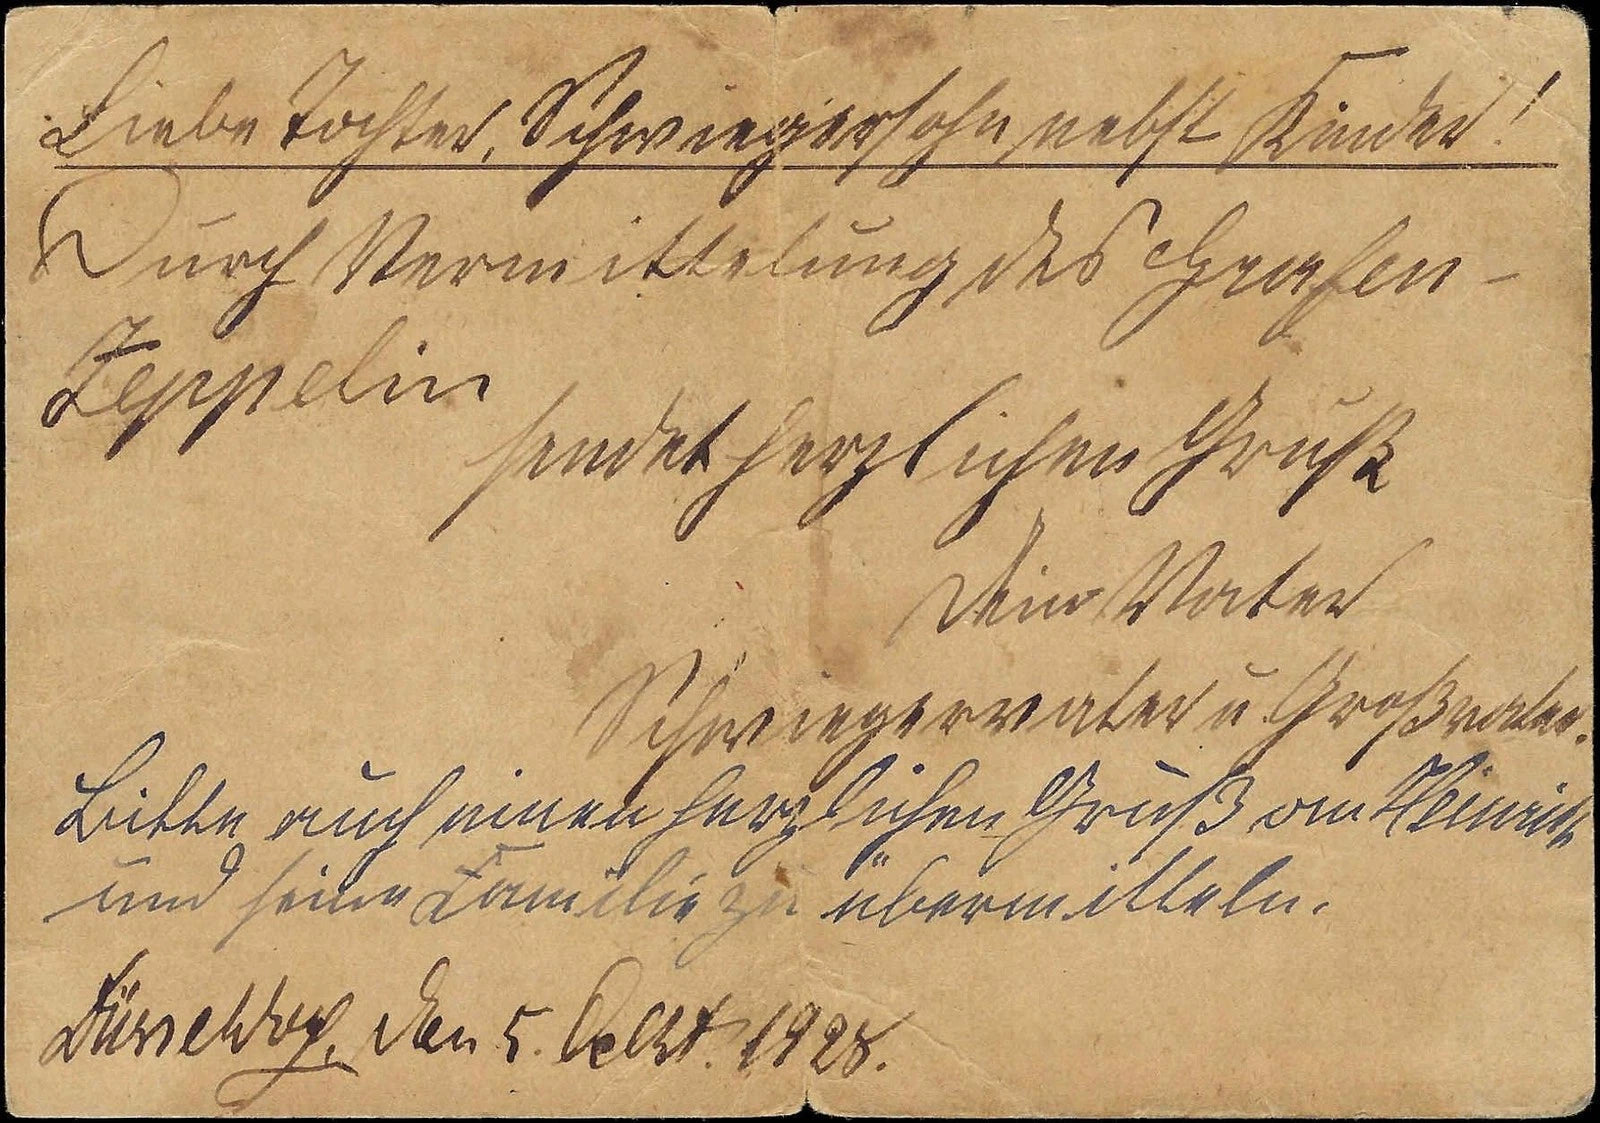 Liebe Tochter, Schwiegersohn nebst Kinder!
Durch Vermittelung des Grafen-
Zeppelin
sendet herzlichen Gruß
Dein Vater
Schwiegervater u Großvater.
Bitte auch einen herzlichen Gruß an Heinrich
und seine Familie zu übermitteln.
Düsseldorf, den 5. Okt. 1928.